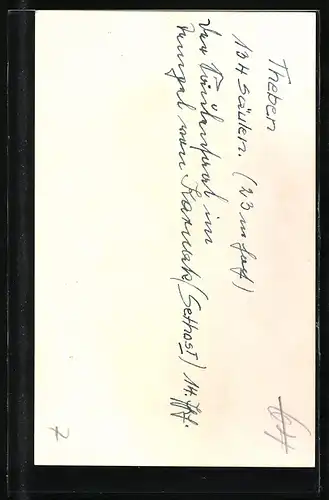 Theben
134 Säulen. (23 m hoch)
Der Säulensaal im
Tempel von Karnak (Sethos I) 14. Jhr.
7